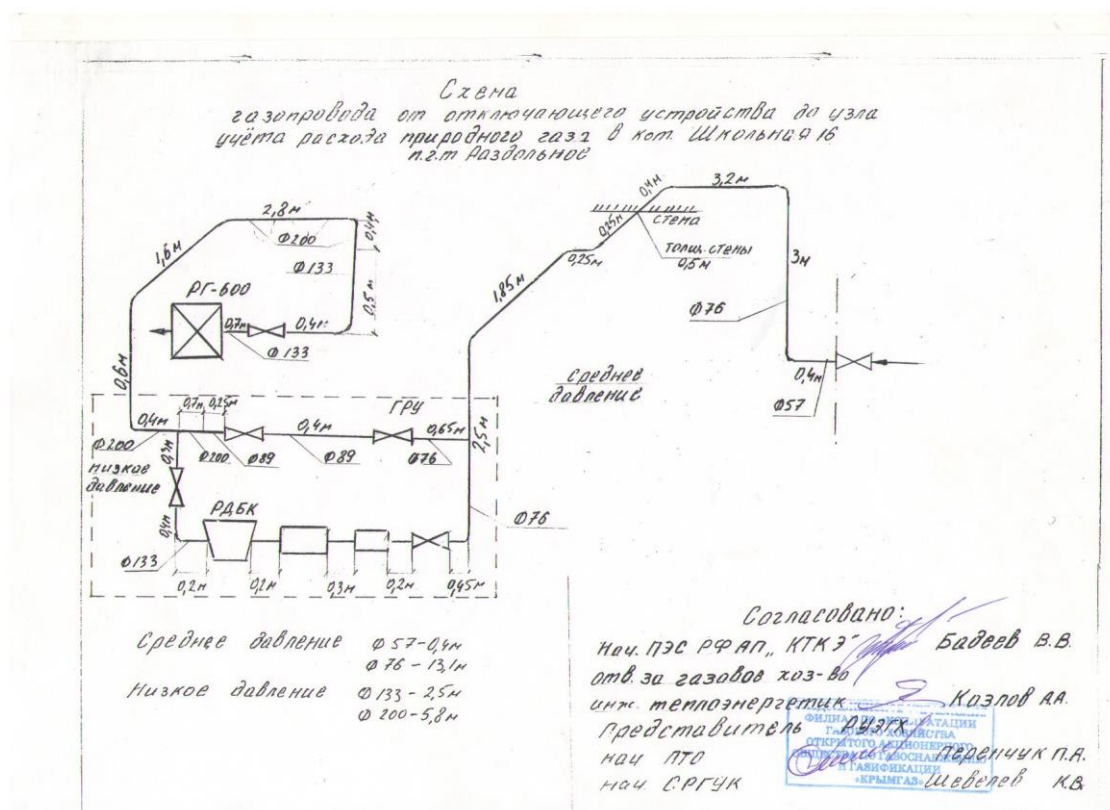 Схема
газопровода от отключающего устройства до узла
учёта расхода природного газа в кот. Школьная 16
п.г.т Раздольное
2,8м
Ф200
0,4м
Ф133
0,5м
1,6м
РГ-600
0,7м
0,4м
Ф133
0,6м
0,4м
3,2м
стена
0,25м
0,25м
толщ. стены
0,5м
1,85м
3м
Ф76
среднее
давление
0,4м
Ф57
ГРУ
0,7м
0,25м
0,4м
0,4м
0,65м
Ф200
Ф200
Ф89
Ф89
Ф76
2,5м
низкое
давление
РДБК
0,4м
Ф133
Ф76
0,2м
0,2м
0,3м
0,2м
0,45м
Среднее давление Ф57-0,4м
Ф76-13,1м
Низкое давление Ф133-2,5м
Ф200-5,8м
Согласовано:
Нач. ПЭС РФ АП „КТКЭ" Бадеев В.В.
отв. за газовое хоз-во
инж. теплоэнергетик Козлов А.А.
Представитель РУЭГХ
нач ПТО Перенчук П.А.
нач. СРГУК Шевелев К.В.
ФИЛИАЛ ПО ЭКСПЛУАТАЦИИ
ГАЗОВОГО ХОЗЯЙСТВА
ОТКРЫТОГО АКЦИОНЕРНОГО
ОБЩЕСТВА ПО ГАЗОСНАБЖЕНИЮ
И ГАЗИФИКАЦИИ
«КРЫМГАЗ»